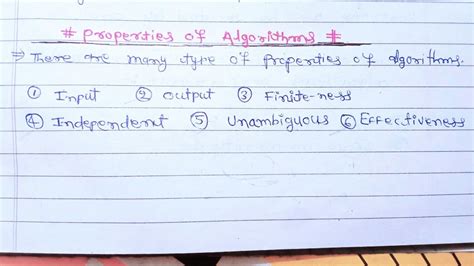 # Properties of Algorithms #
⇒ There are many type of properties of algorithms.
① Input ② output ③ Finite-ness
④ Independent ⑤ Unambiguous ⑥ Effectiveness